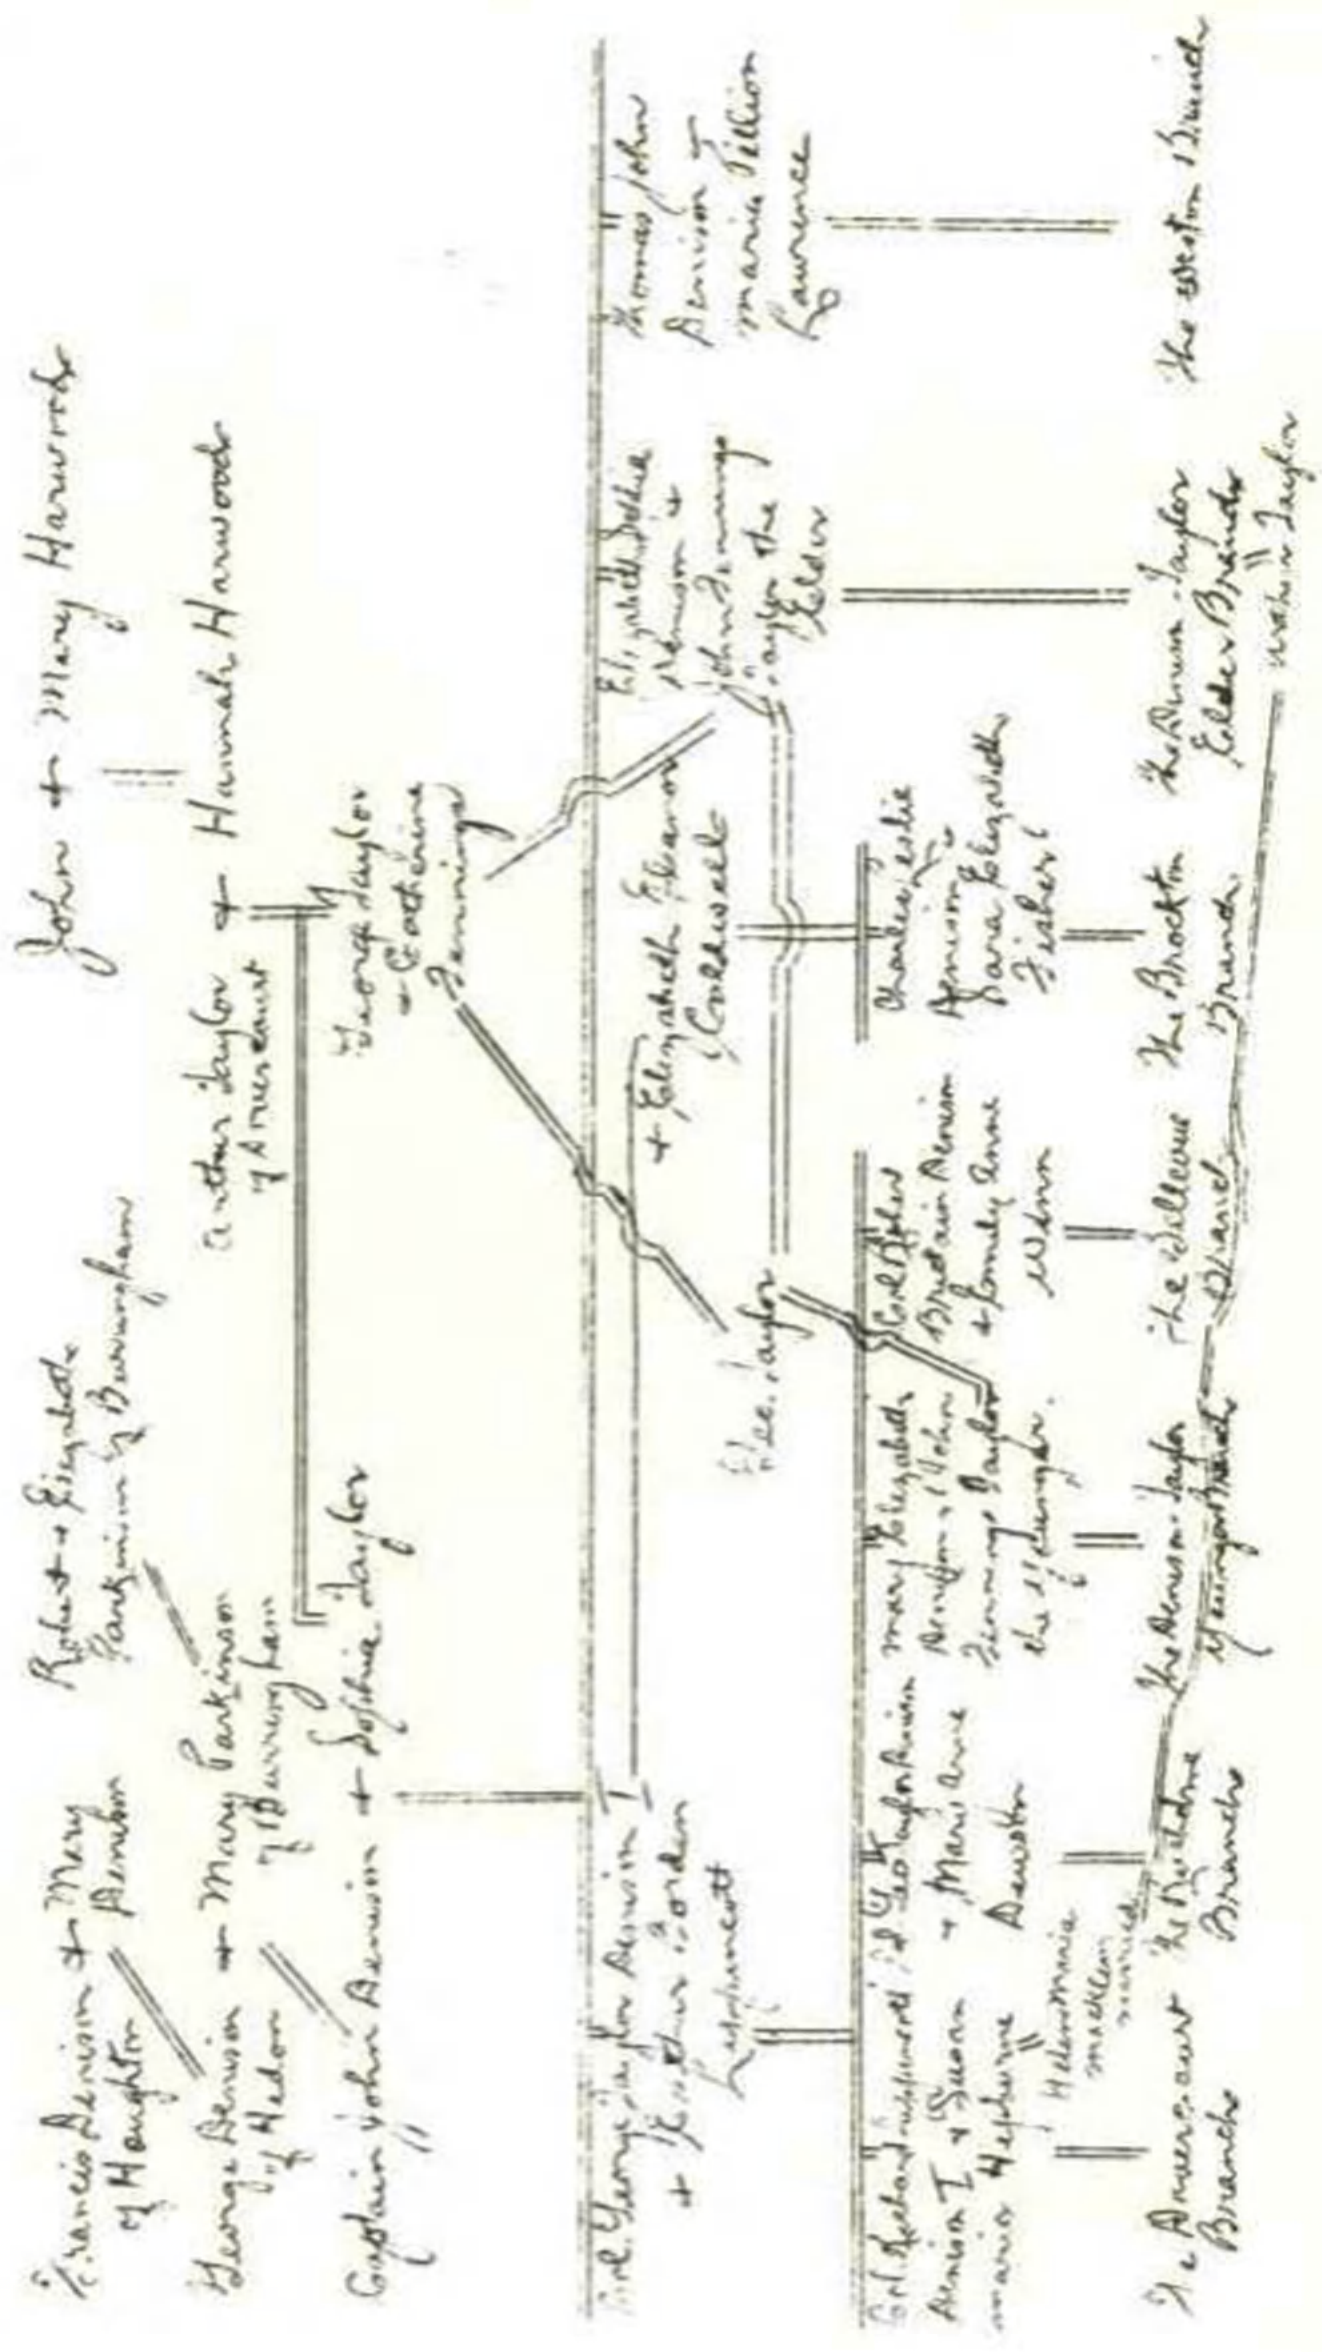 Francis Denison + Mary
of Haughton Denison
Robert + Elizabeth
Parkinson of Burringham
John + Mary Harwood
George Denison + Mary Parkinson
of Hedon of Burringham
Arthur Taylor + Hannah Harwood
of Dovercourt
Captain John Denison + Sophia Taylor
George Taylor
+ Catherine
Jennings
Col. George Taylor Denison I
+ Esther Borden
Lippincott
+ Elizabeth Eleanor
Caldwell
Elizabeth Sophia
Denison +
John Jennings
Taylor the
Elder
Thomas John
Denison +
Maria
Lawrence
Taylor
Col. Richard Lippincott
Denison I + Susan
Maria Hepburne
Col. Geo Taylor Denison
+ Mary Anne
Dewson
Mary Elizabeth
Denison + John
Jennings Taylor
the Younger.
Col.
Denison
+ Emily Anne
Charles Leslie
Denison +
Sara Elizabeth
Fisher
Helen Maria
Macklem
married
The Dovercourt
Branch
The Rusholme
Branch
The Denison-Taylor
Younger Branch
The Bellevue
Branch
The Brockton
Branch
The Denison-Taylor
Elder Branch
The Weston Branch
Taylor